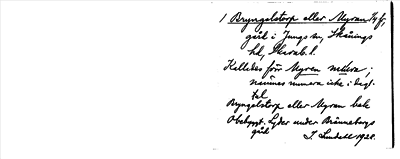 1 Bryngelstorp eller Myran 1/4 fr,
gård i Jungs sn, Skånings
hd, Skarab. l.
Kallades förr Myren
nämnes numera icke i dagl.
tal
Bryngelstorp eller Myran bak
Obebyggt. Lyder under Brännebergs
gård
J. Lindell 1920.